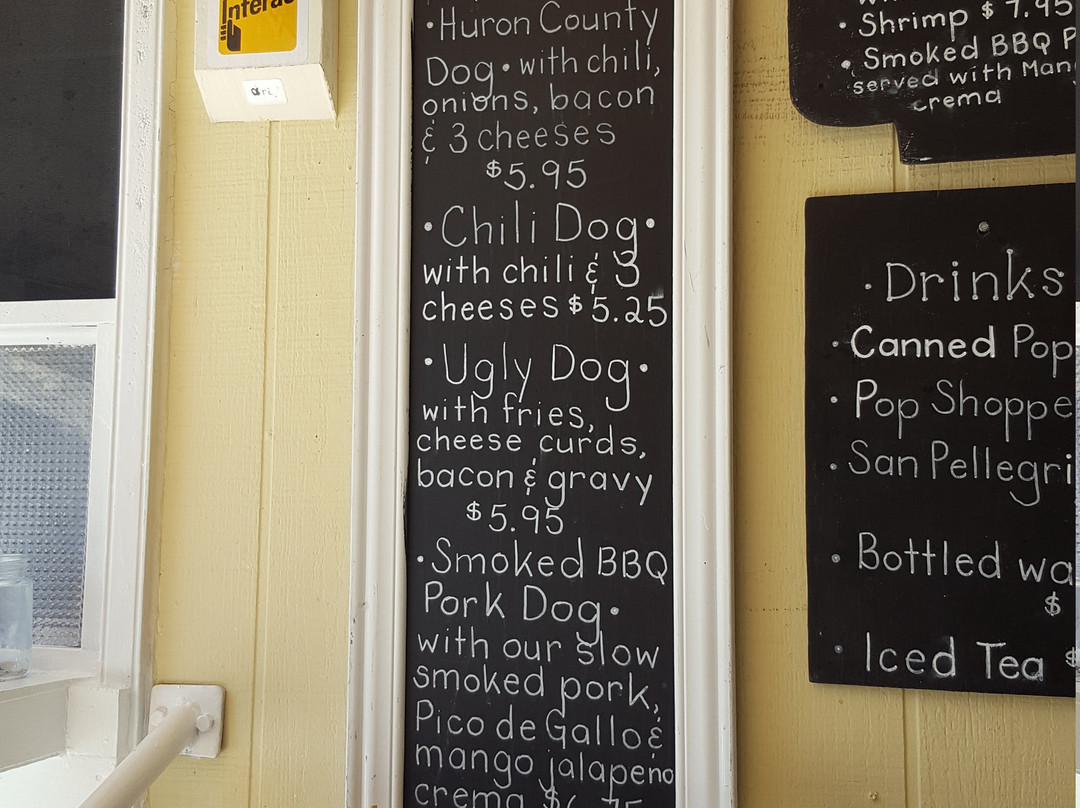 Interac
·Huron County
Dog· with chili,
onions, bacon
& 3 cheeses
$5.95
·Chili Dog·
with chili & 3
cheeses $5.25
·Ugly Dog·
with fries,
cheese curds,
bacon & gravy
$5.95
·Smoked BBQ
Pork Dog·
with our slow
smoked pork,
Pico de Gallo &
mango jalapeno
crema
· Shrimp $7.95
· Smoked BBQ P
served with Man
crema
· Drinks
· Canned Pop
· Pop Shoppe
· San Pellegri
· Bottled wa
$
· Iced Tea $